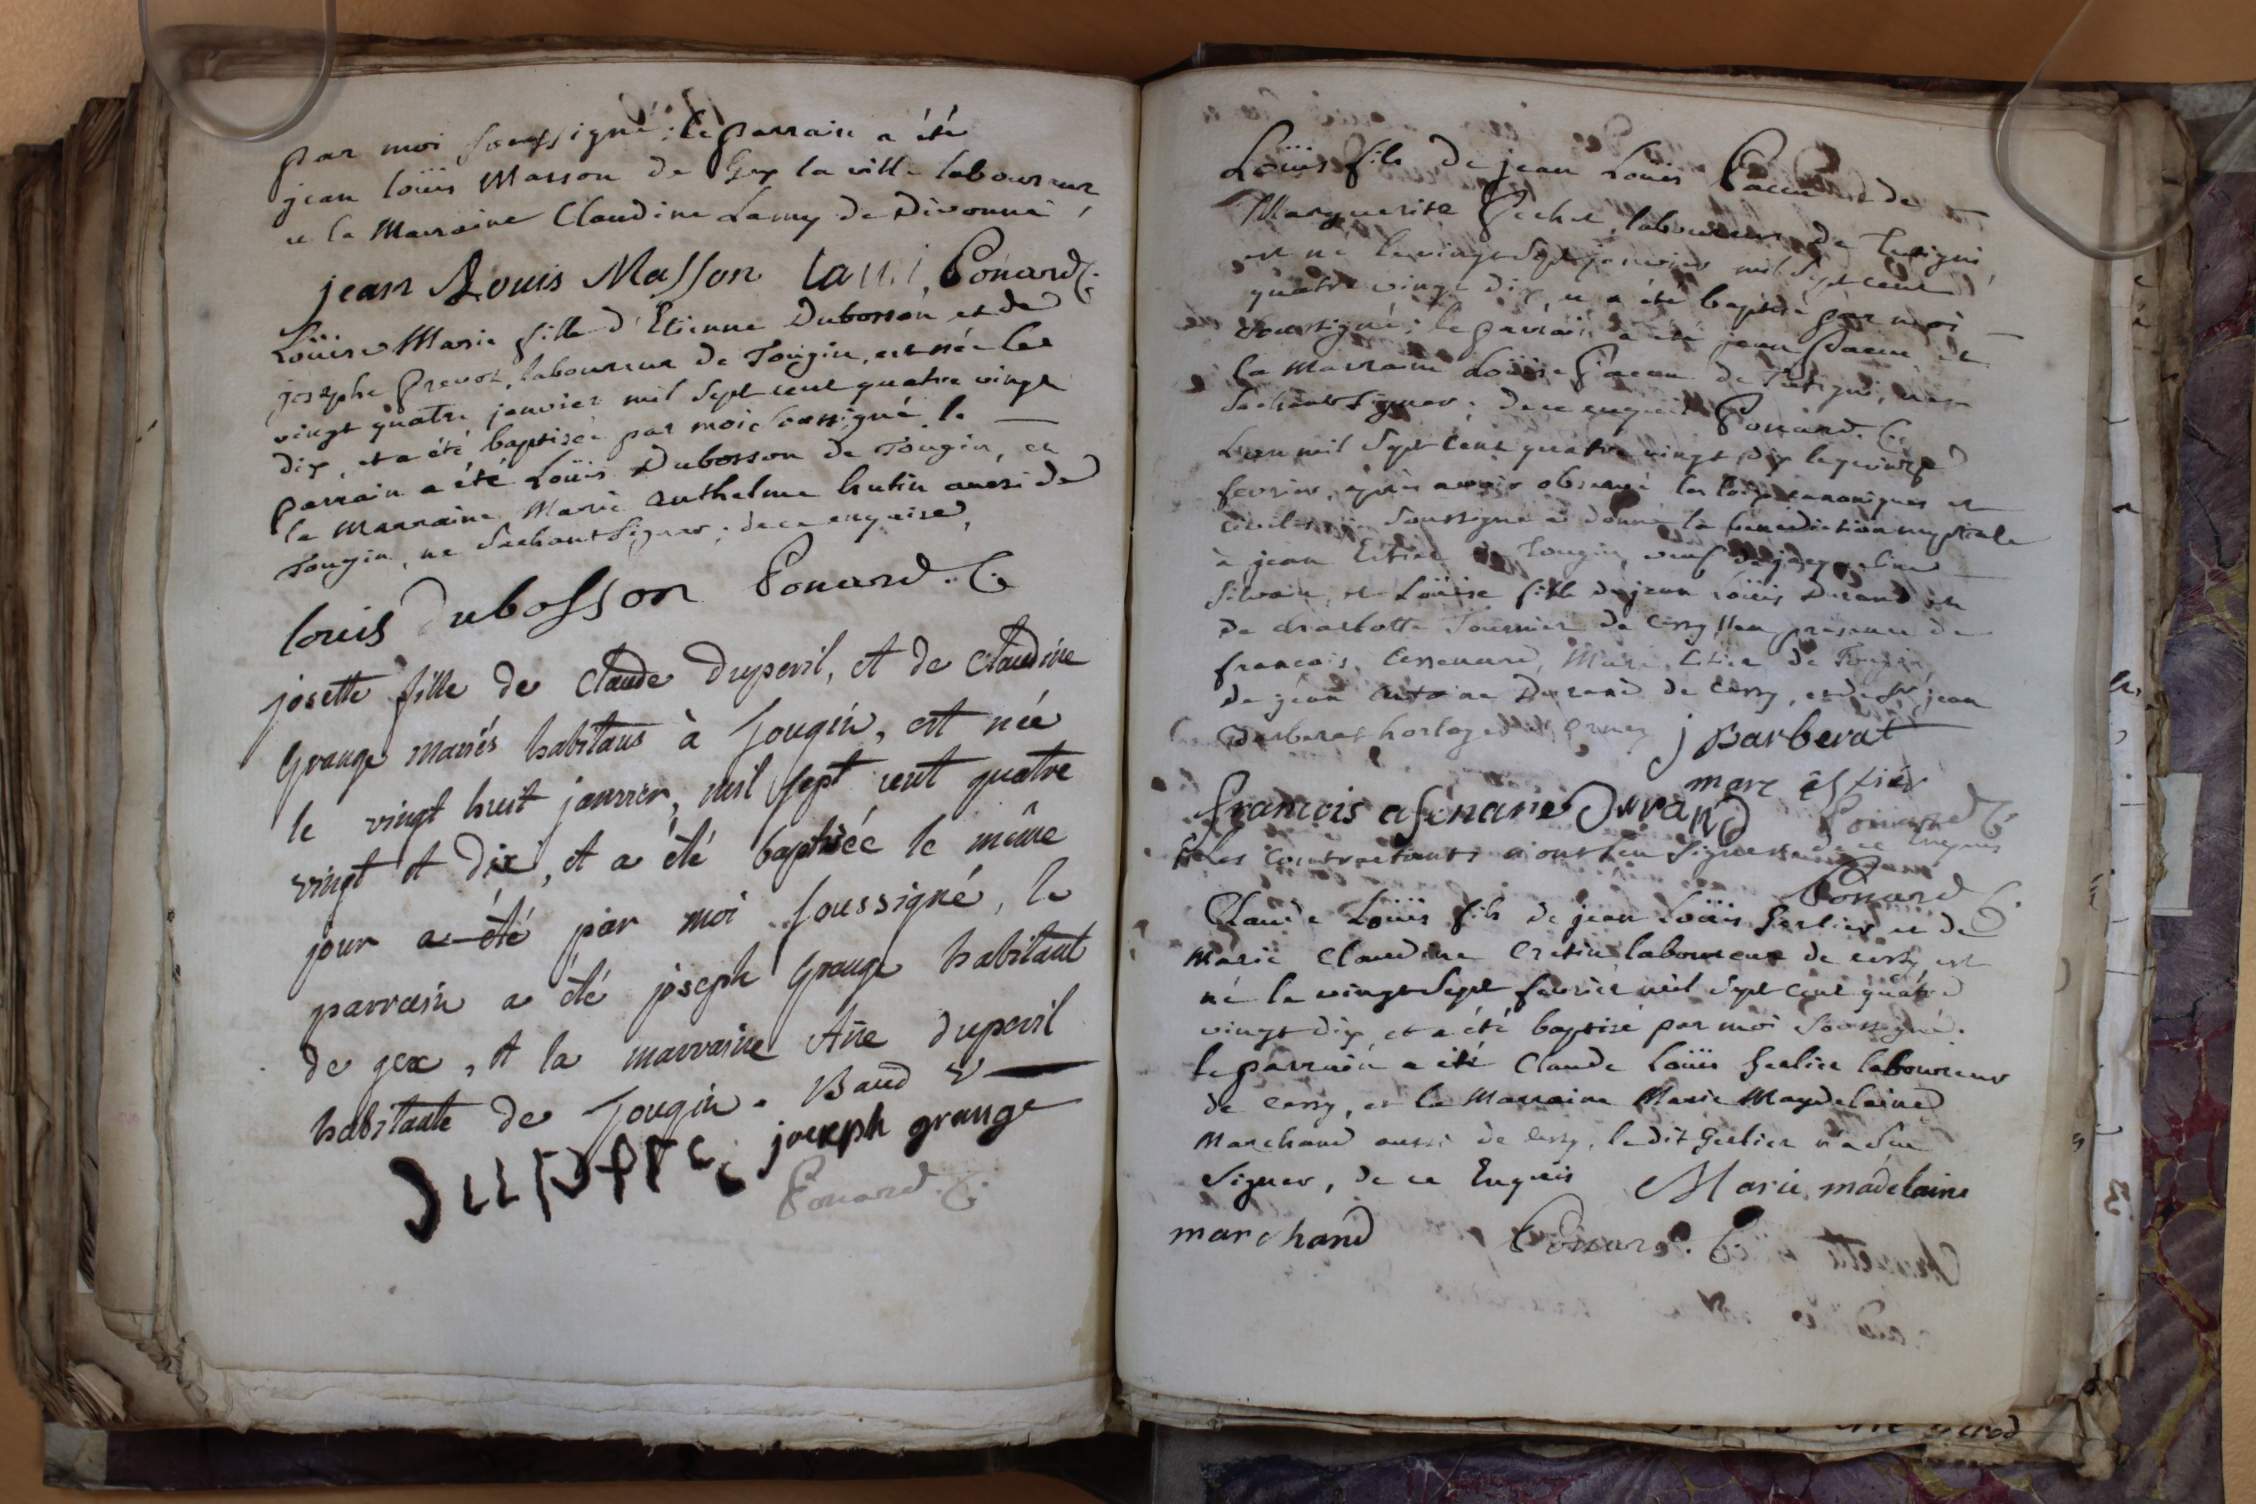 par moi soussigné; le parrain a été
jean loüis Masson de Gex la ville laboureur,
et la Marraine Claudine Lamy de Divonne,
jean Louis Masson lami Ponard C.
Loüise Marie fille d'Etienne Dubosson et de
josephe Prevot, laboureur de Tougin, est née le
vingt quatre janvier mil sept cent quatre vingt
dix, et a été baptisée par moi soussigné le
parrain a été Loüis Dubosson de Tougin, et
la Marraine Marie anthelme hutin aussi de
Tougin, ne sachant signer; de ce enquise,
louis Dubosson Ponard. C.
josette fille de Claude Duperil, et de Claudine
Grange mariés habitans à Tougin, est née
le vingt huit janvier, mil sept cent quatre
vingt et dix, et a été baptisée le même
jour a été par moi soussigné, le
parrain a été joseph Grange habitant
de gex, et la marraine Añe duperil
habitante de Tougin. Baud V.
joseph grange
Ponard. C.
Loüis fils de jean Loüis Pacu et de
Marguerite Pechet, laboureur de
est né le vingt sept janvier mil sept cent
quatre vingt dix, et a été baptisé par moi
soussigné; le parrain a été jean Pacu et
la Marraine Loüise Pacu de
sachant signer; de ce enquis Ponard. C.
L'an mil sept cent quatre vingt dix le quinze
fevrier, après avoir observé les loix canoniques et
civiles soussigné a donné la bénédiction nuptiale
à jean Estier de Tougin, veuf de jacqueline
Silvain, et Loüise fille de jean Loüis Durand et
de charlotte Fournier de Cessy, en presence de
françois, Marc Estier de Tougin
de jean antoine Durand de Cessy, et de Sr. jean
Barberat horloger j Barberat
marc estier
francois asenare Durand Ponard C.
les contractants n'ont su signer de ce enquis
Ponard C.
Claude Loüis fils de jean Loüis Gerlier et de
Marie Claudine Cretin laboureur de Cessy est
né le vingt sept fevrier mil sept cent quatre
vingt dix, et a été baptisé par moi soussigné.
le parrain a été Claude Loüis Gerlier laboureur
de Cessy, et la Marraine Marie Magdelaine
Marchand aussi de Cessy, le dit Gerlier n'a su
signer, de ce Enquis Marie madelaine
marchand Ponard. C.